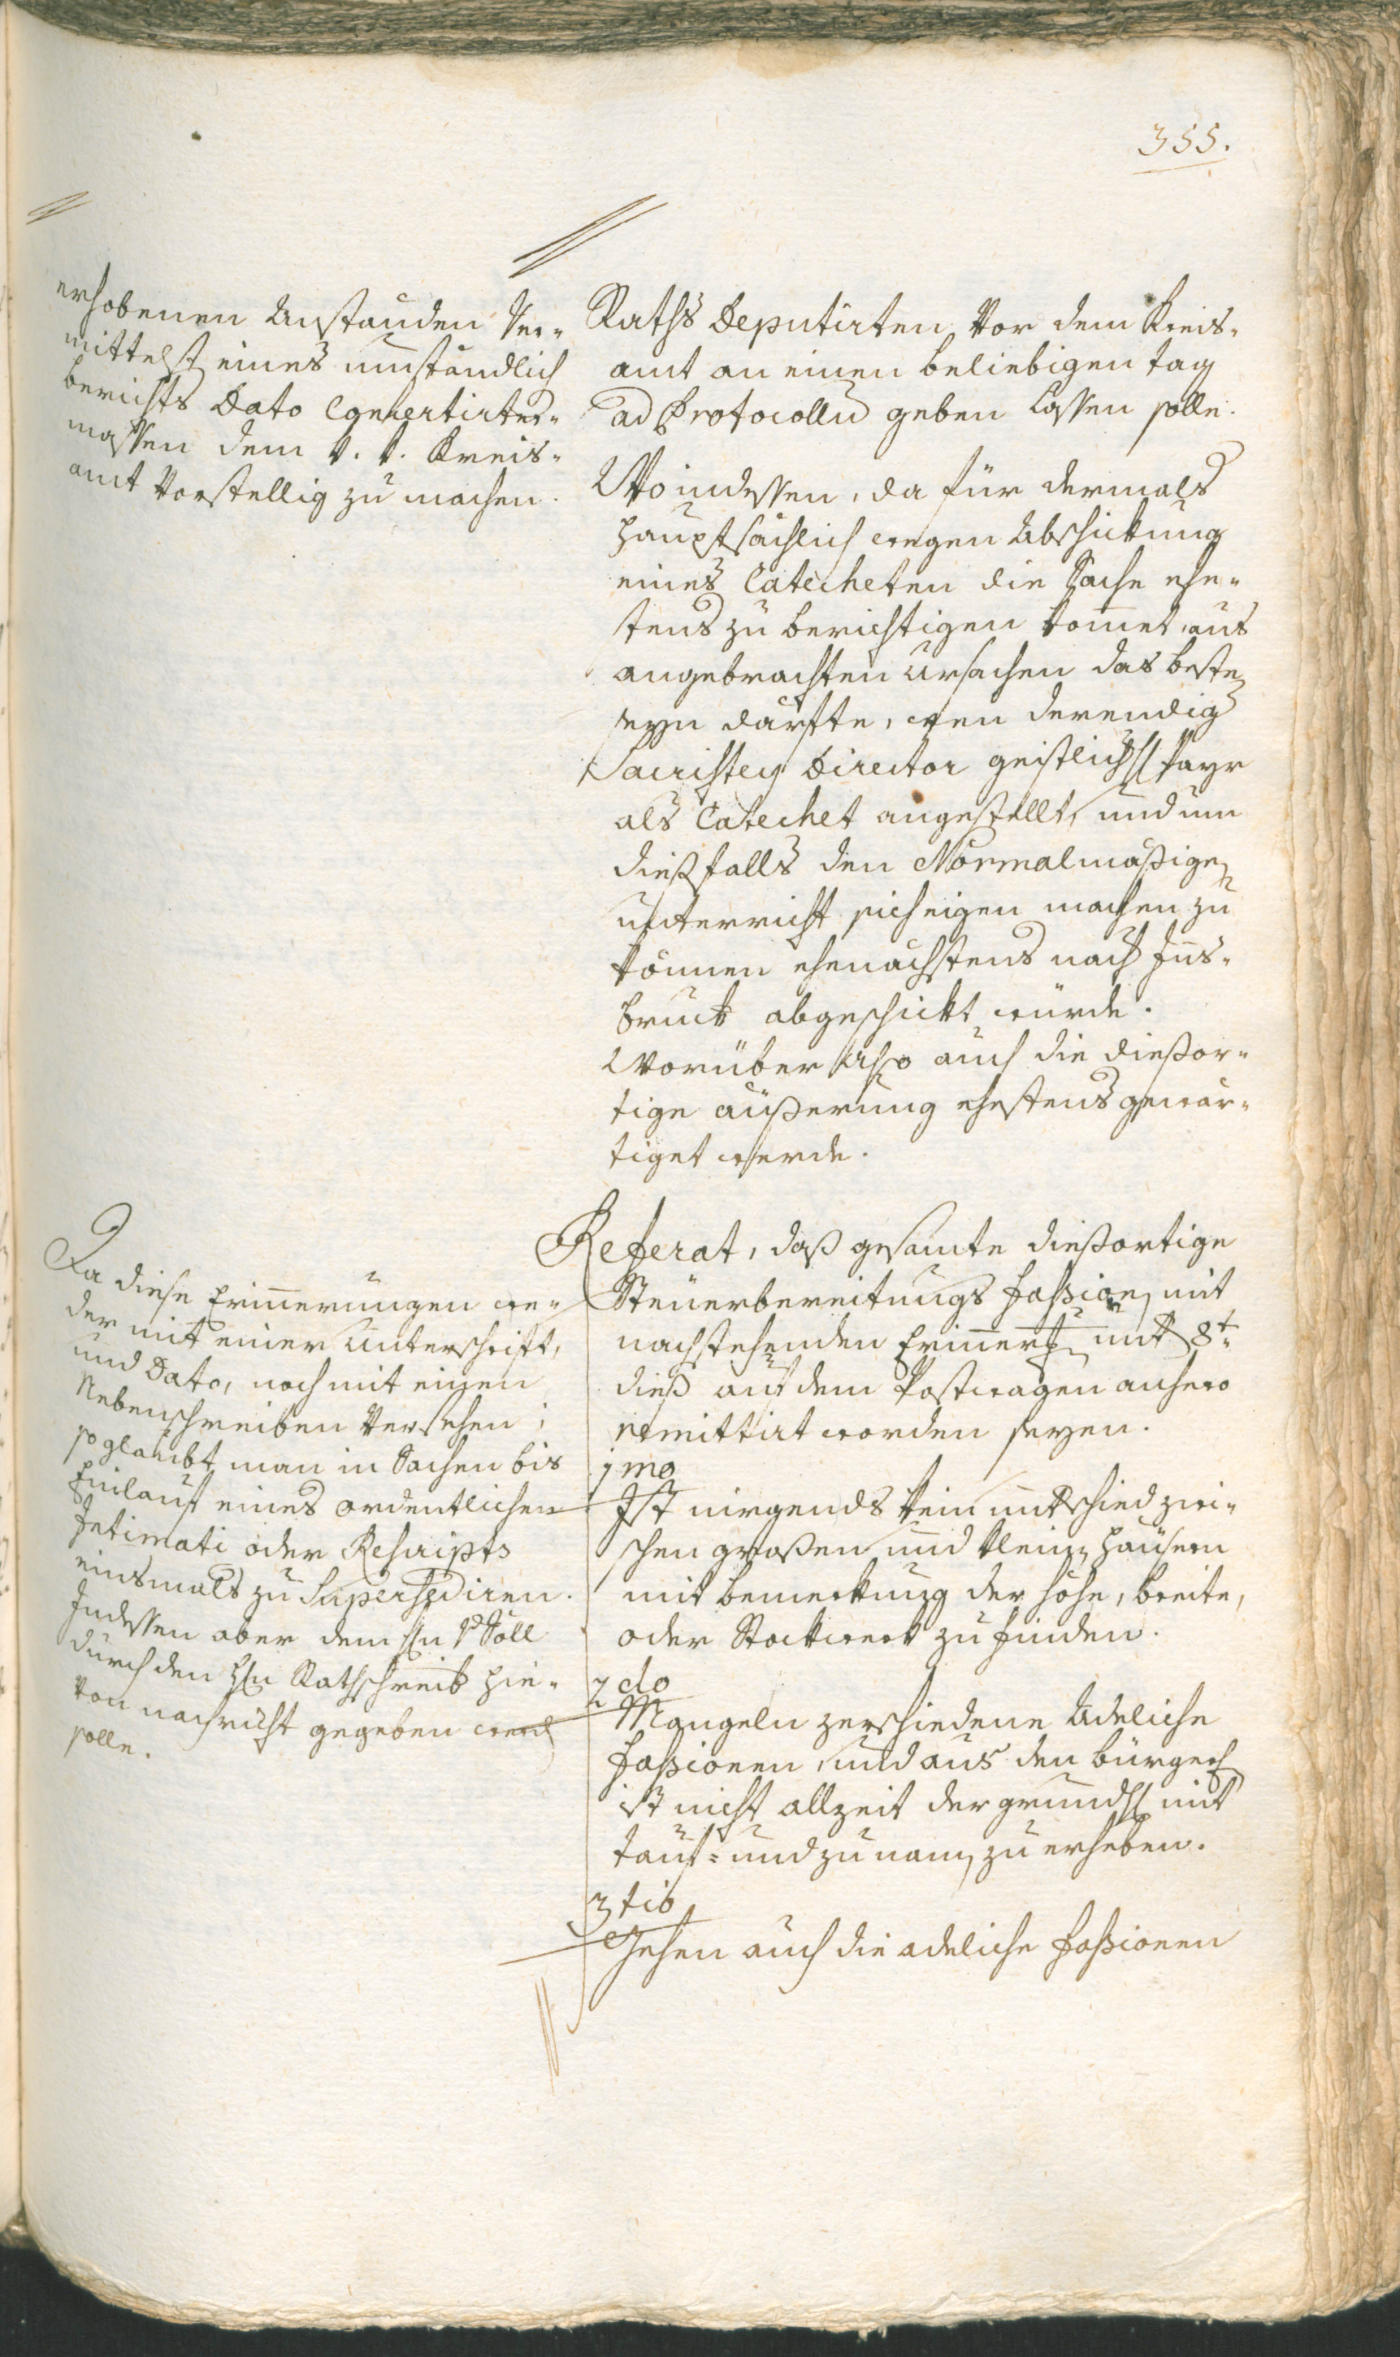 355.
erhobenen Anständen ver-
mittelst eines umständlich
berichts Dato Concertirter-
massen dem k. k. Kreis-
amt vorstellig zu machen.
Raths Deputirten vor dem Kreis-
amt an einen beliebigen tag
ad Protocollu geben lassen solle.
Wo indessen, da für dermals
hauptsächlich wegen Abschickung
eines Catecheten die Sache ehe-
tens zu berichtigen kommet, aus
angebrachten Ursachen das beste
seyn dürfte, wen derendig
Sacristey Director geistlich H Payr
als Catechet angestellt, und um
diesfalls den Normalmäßigen
unterricht sich eigen machen zu
können ehenächstens nach Inns-
bruck abgeschickt würde.
Worüber also auch die diesor-
tige äußerung ehestens gewär-
tiget werde.
Da diese Erinnerungen we-
der mit einer Unterschrift,
und Dato, noch mit einen
Nebenschreiben versehen;
so glaubt man in Sachen bis
Einlauf eines ordentlichen
Intimati oder Rescripts
einsmals zu Supersediren.
Indessen aber dem Hn v Söll
durch den Hn Rathschreib hie-
von nachricht gegeben werd
solle.
Referat, daß gesamte diesortige
Steuerbereitungs Fassionen mit
nachstehenden Erinnerungen mit 8t
dieß auf dem Postwagen anhero
remittirt worden seyen.
1mo
Ist nirgends kein unterschied zwi-
schen großen und kleinen Häusern
mit bemerkung der höhe, breite,
oder Stockwerk zu finden.
2do
Mangeln zerschiedene Adeliche
Fassionen, und aus den bürgerl
ist nicht allzeit der grundH mit
tauf- und zunamen zu erheben.
3tio
Gehen auch die adeliche Fassionen